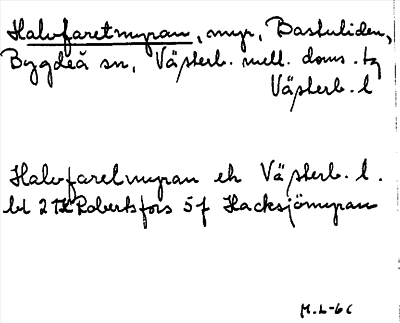 Halvfaretmyran, myr, Bastuliden,
Bygdeå sn, Västerb. mell. doms. tg
Västerb. l
Halvfaretmyran ek Västerb. l.
bl 21 Robertsfors 5 f Hacksjömyran
M.L-6